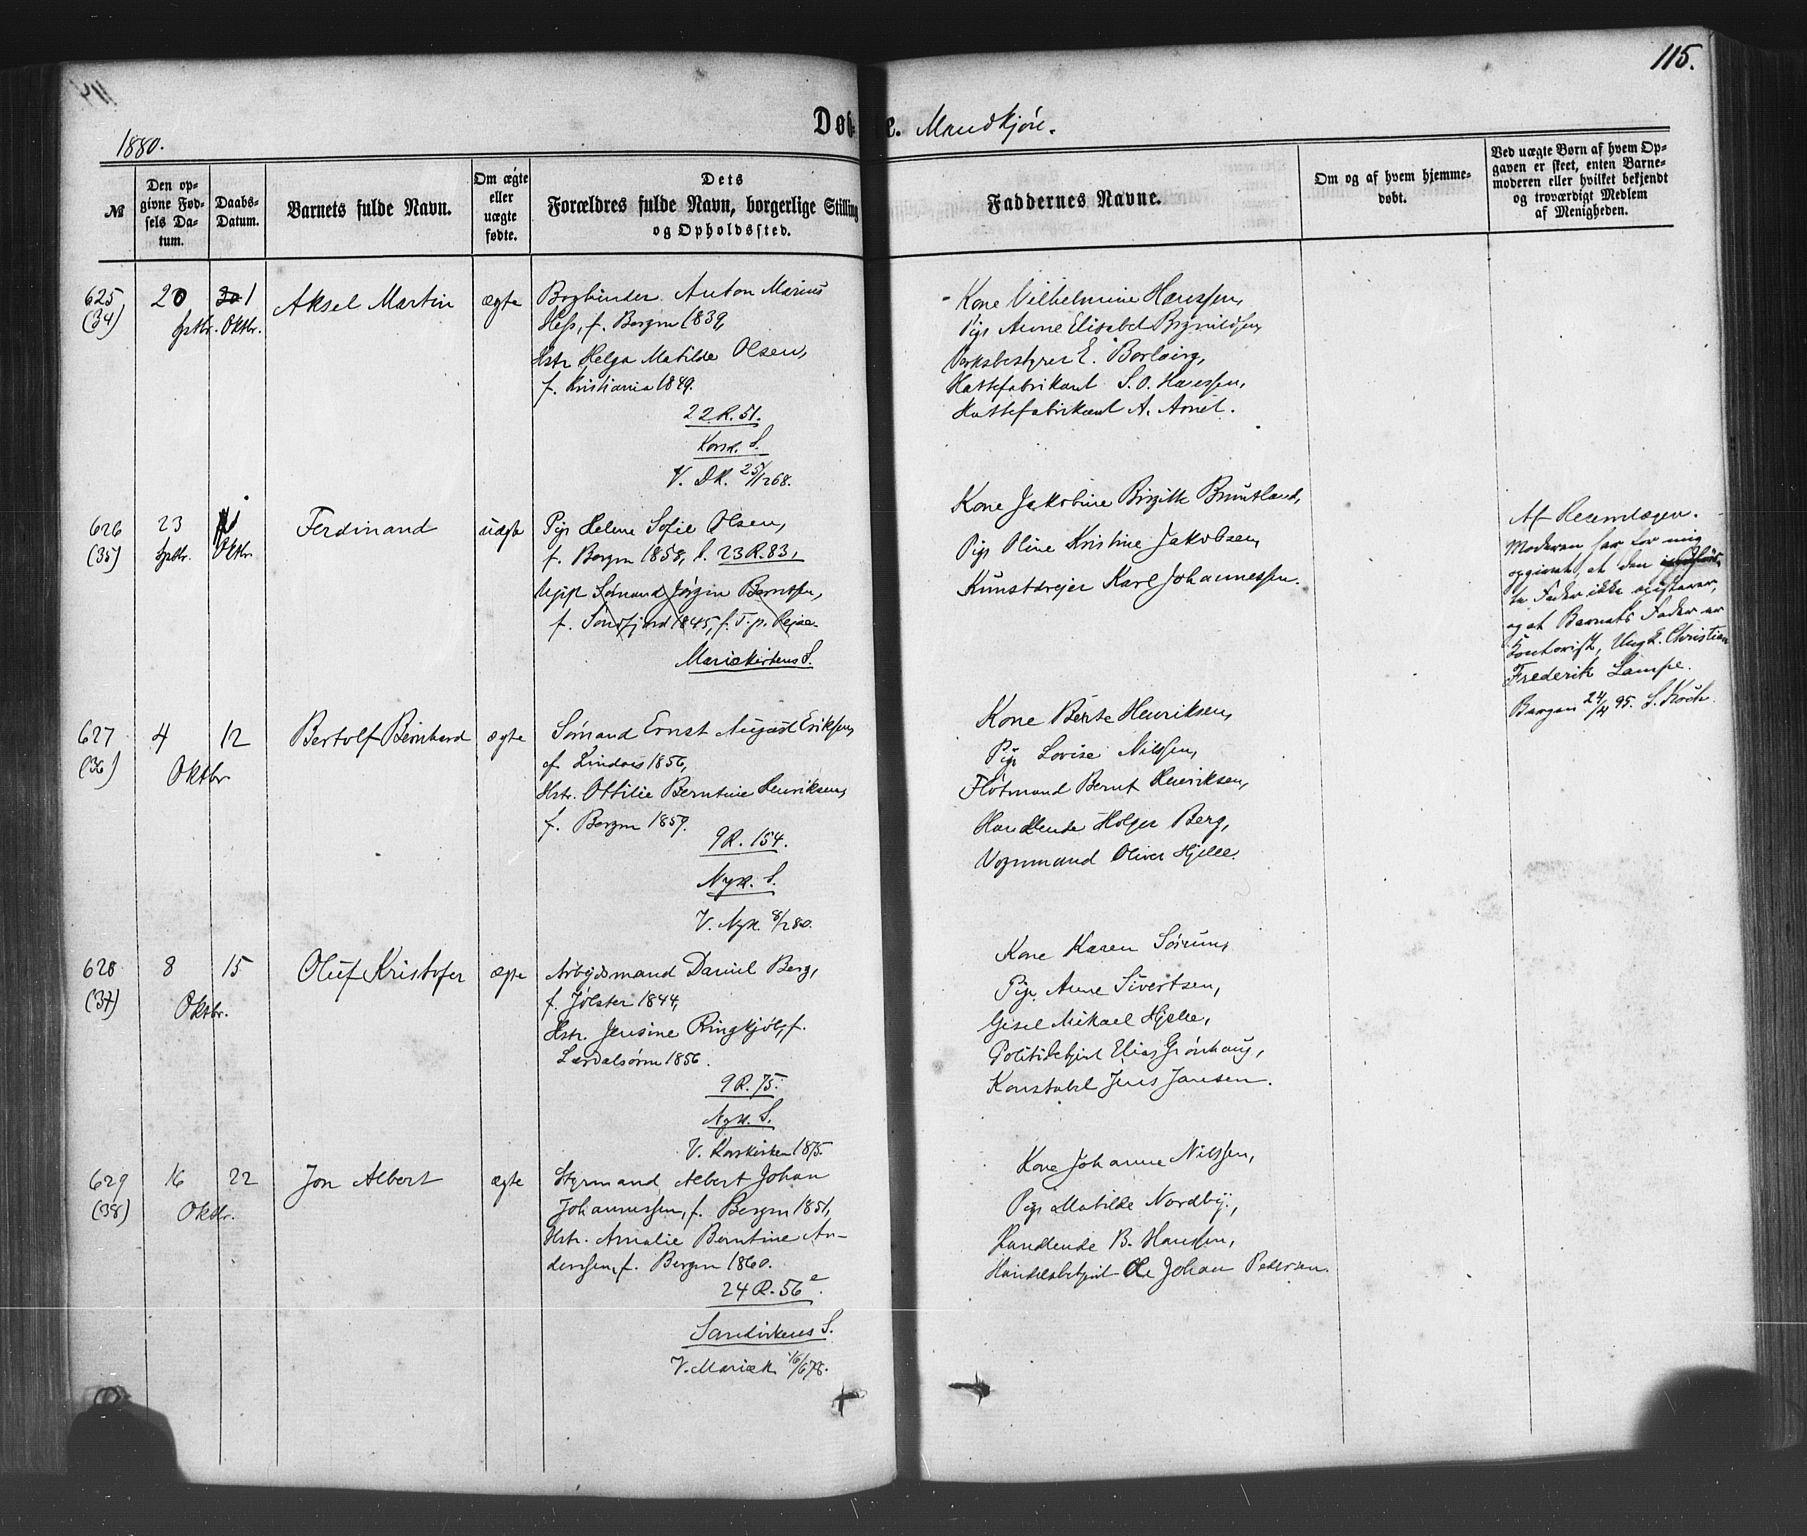 115.
1880.
Døb e. Mandkjøn.
№
Den op-
givne Fød-
sels Da-
tum.
Daabs-
Datum.
Barnets fulde Navn.
Om ægte
eller
uægte
fødte.
Dets
Forældres fulde Navn, borgerlige Stilling
og Opholdssted.
Faddernes Navne.
Om og af hvem hjemme-
døbt.
Ved uægte Børn af hvem Op-
gaven er skeet, enten Barne-
moderen eller hvilket bekjendt
og troværdigt Medlem
af Menigheden.
625
(34)
20
Sptbr.
1
Oktbr.
Aksel Martin
ægte
Bogbinder Anton Marius
Hess, f. Bergen 1839,
Hstr. Helga Matilde Olsen,
f. Kristiania 1849.
22 R. 51.
Korsk. S.
V. DK. 25/12 68.
Kone Vilhelmine Hanssen,
Pige Anne Elisabet
Verksbestyrer E.
Hattefabrikant S. O. Hanssen,
Hattefabrikant A.
626
(35)
23
Sptbr.
Oktbr.
Ferdinand
uægte
Pige Helene Sofie Olsen,
f. Bergen 1858, b. 23 R. 83,
Sømand Jørgen Berntsen,
f. Søndfjord 1845,
Mariekirkens S.
Kone Jakobine Birgitte
Pige Oline Kristine Jakobsen,
Kunstdreier Karl Johannessen.
Moderen har for mig
opgivet, at den
te Fader ikke existerer,
og at Barnets Fader er
Kontorist, Ungk. Christian
Frederik Lampe.
Bergen 24/4 95. S. Koch
627
(36)
4
12
Oktbr.
Bertolf Bernhard
ægte
Sømand Ernst August Eriksen,
f. Lindaas 1856,
Hstr. Ottilie Berntine Henriksen,
f. Bergen 1857.
9 R. 154.
Nyk. S.
V. Nyk. 8/2 80.
Kone Berte Henriksen,
Pige Lovise Nilssen,
Fløtmand Bernt Henriksen,
Handlende Holger Berg,
Vognmand Oliver Hjelle.
628
(37)
8
15
Oktbr.
Oluf Kristofer
ægte
Arbejdsmand Daniel Berg,
f. Jølster 1844,
Hstr. Jensine Ringkjøb, f.
Lærdalsøren 1856.
9 R. 75.
Nyk. S.
V. Korskirken 1875.
Kone Karen Sørum,
Pige Anne Sivertsen,
Gisel Mikael Hjelle,
Politibetjent Elias Grønhaug,
Konstabel Jens Jansen.
629
(38)
16
22
Oktbr.
Jon Albert
ægte
Styrmand Albert Johan
Johannessen, f. Bergen 1851,
Hstr. Amalie Berntine An-
derssen, f. Bergen 1860.
24 R. 56 a.
Sandvikens S.
V. Mariek. 16/6 78.
Kone Johanne Nilssen,
Pige Matilde Nordby,
Handlende B. Hanssen,
Handelsbetjent Ole Johan Pedersen.